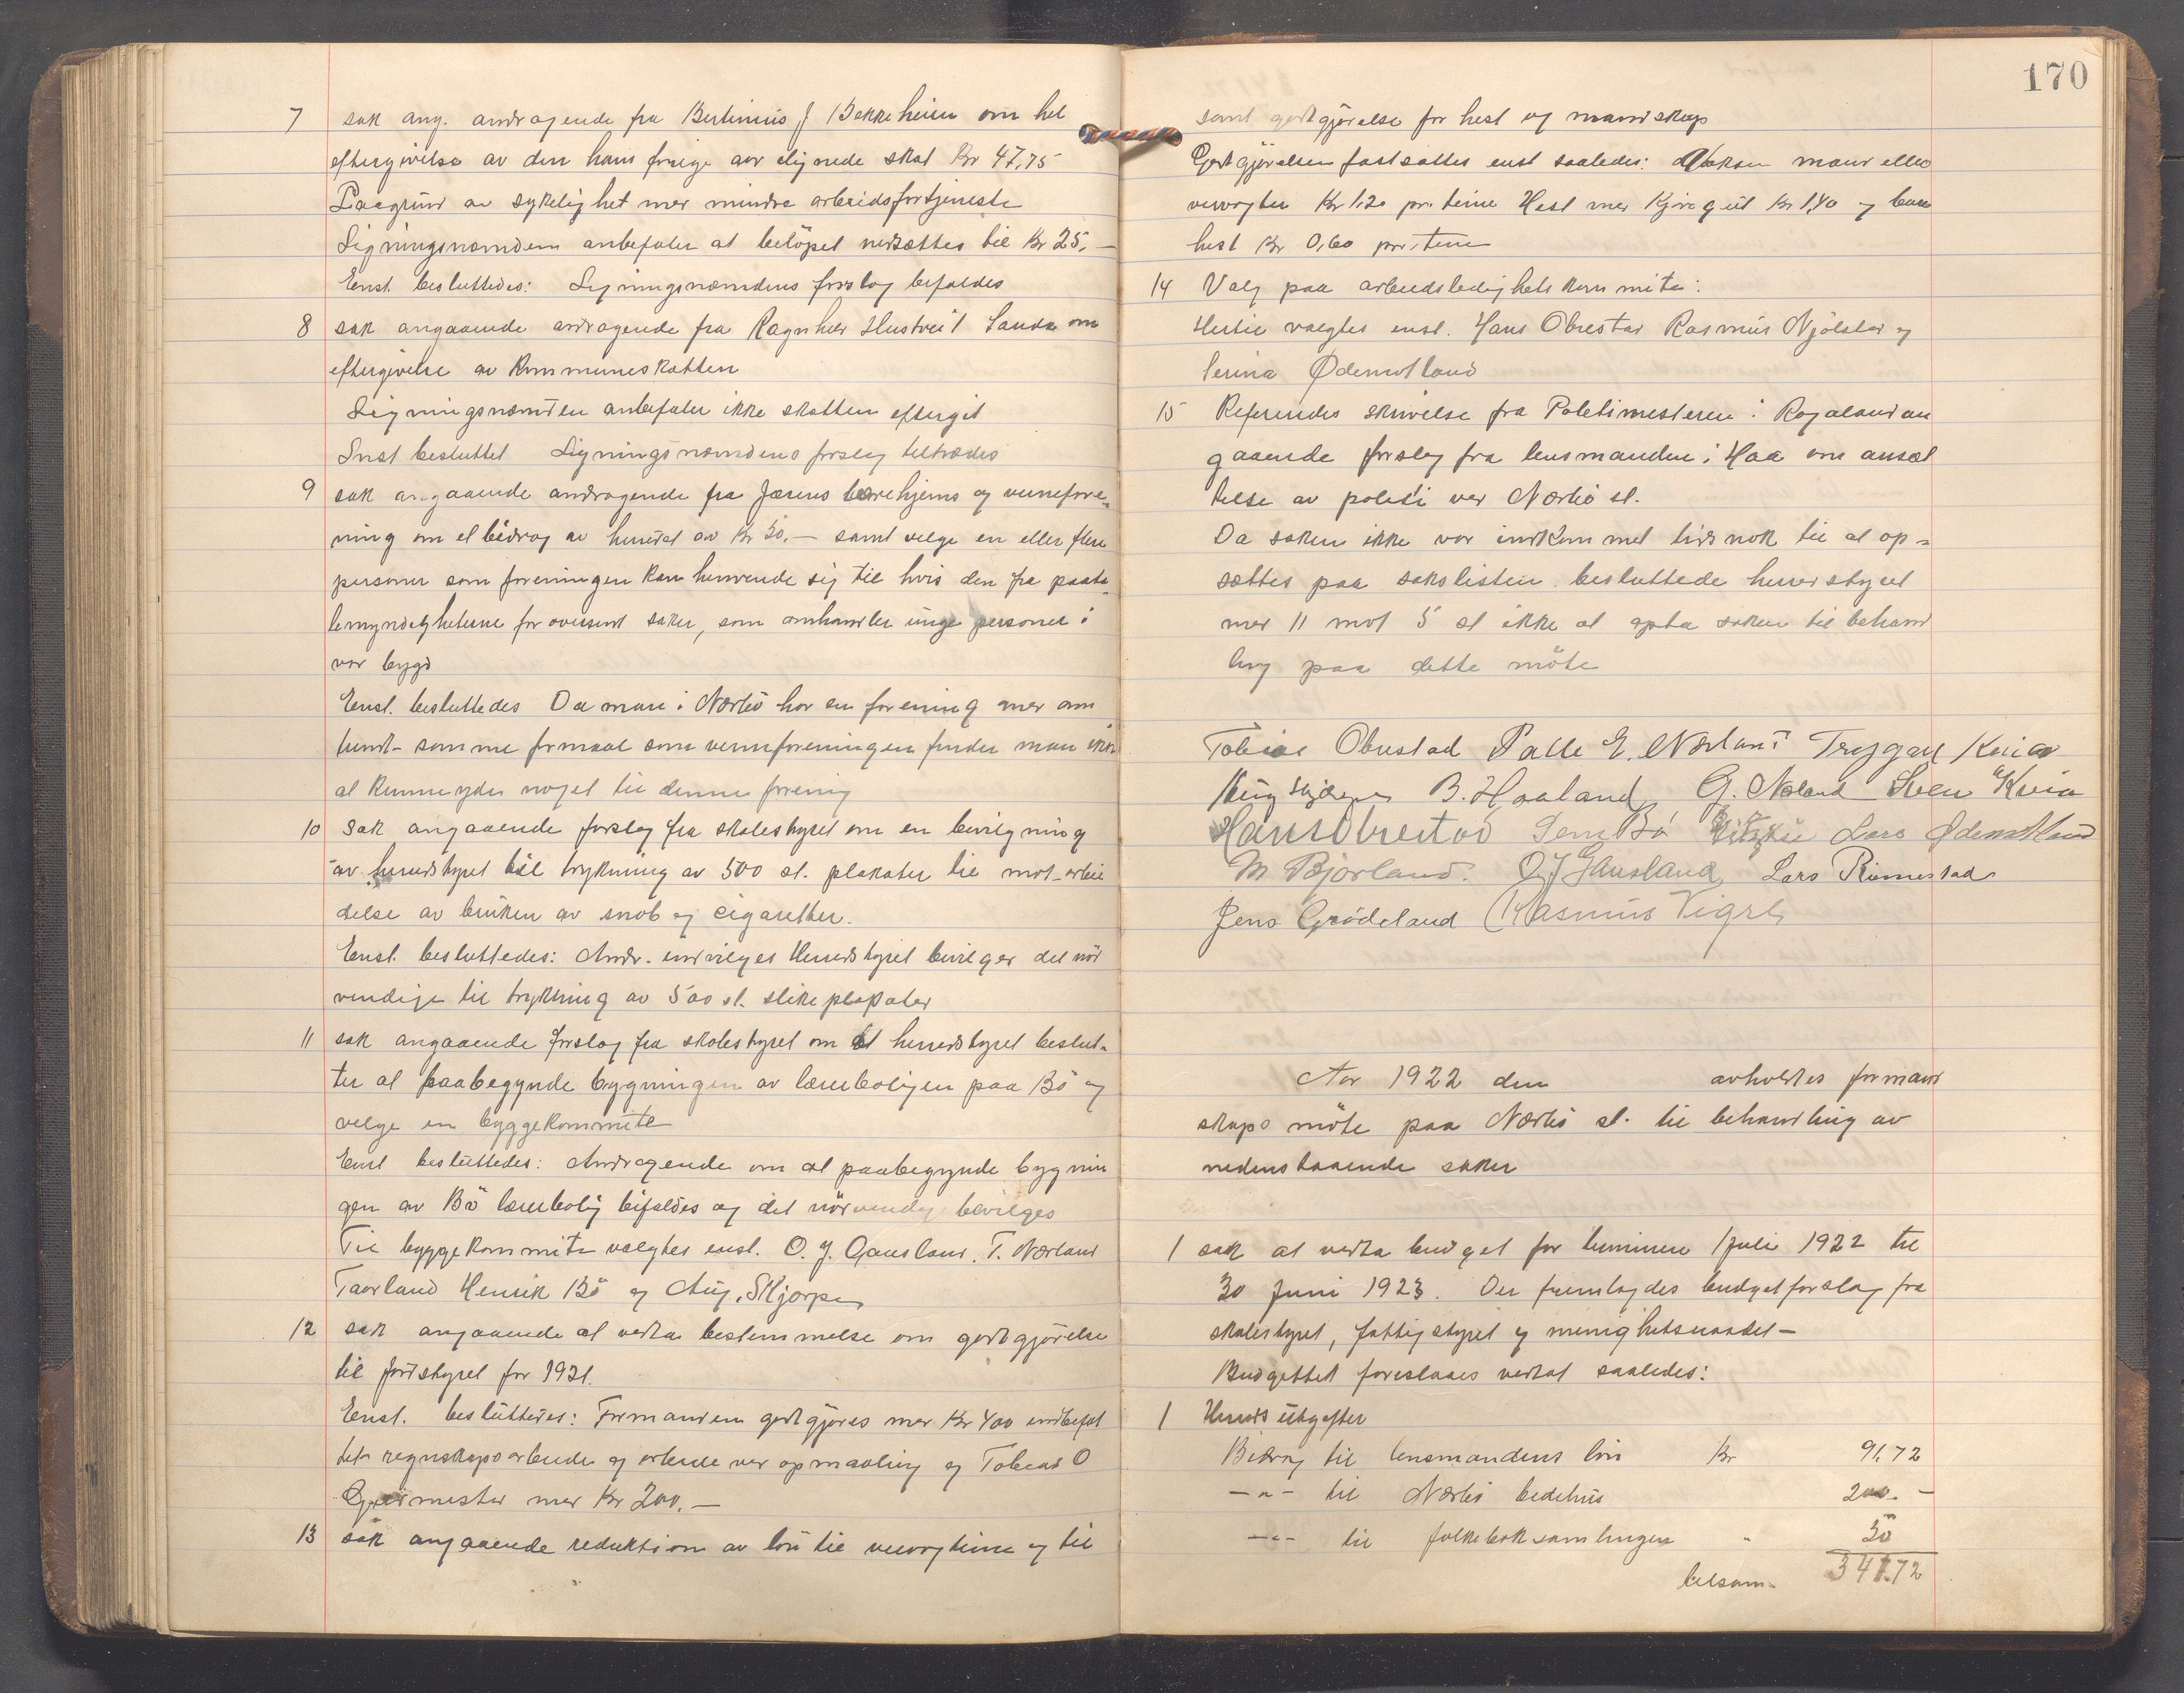 7 sak ang. andragende fra Bertinius J Bekkeheien om hel
eftergivelse av den ham forrige aar elignede skat Kr 47,75
Paagrund av sykelighet med mindre arbeidsfortjeneste
Ligningsnæmden anbefaler at beløpet nedsættes til Kr 25.—
Enst. besluttedes: Ligningsnæmdens forslag bifaldes
8 sak angaaende andragende fra Ragnhild Hustveit Sanda om
eftergivelse av kommuneskatten
Ligningsnæmden anbefaler ikke skatten eftergit
Enst besluttet Ligningsnæmdens forslag tiltrædes
9 sak angaaende andragende fra Jærens barehjems og vernefore-
ning om et bidrag av herredet av Kr 50.— samt velge en eller flere
personer som foreningen kan henvende sig til hvis den fra paata-
lemyndigheterne faar oversent saker, som omhandler unge personer i
vor bygd
Enst. besluttedes Da man i Nærbø har en forening med om
trent samme formaal som verneforeningen finder man ikke
at kunne yde noget til denne forening
10 Sak angaaende forslag fra skolestyret om en bevilgning
av herredstyret til trykning av 500 st. plakater til mot-arbei
delse av bruken av snob og cigaretter.
Enst. besluttedes: Andr. indvilges Herredstyret bevilger det nød
vendige til trykning av 500 st. slike plakater
11 sak angaaende forslag fra skolestyret om at herredstyret beslut-
ter at paabegynde bygningen av lærerboligen paa Bö og
velge en byggekommite
Enst besluttedes: Andragende om at paabegynde bygnin
gen av Bö lærerbolig bifaldes og det nödvendige bevilges
Til byggekommite valgtes enst. O. J. Gausland. T. Nærland
Taarland Henrik Bö og Aug. Skjærpe
12 sak angaaende at vedta bestemmelse om godtgjörelse
til jordstyret for 1921.
Enst. besluttedes: Formanden godtgjøres med Kr 400 indbefat
tet regnskapsarbeide og arbeide ved opmaaling og Tobias O
Gudmestad med Kr 200.—
13 sak angaaende reduktion av lön til veivogterne og til
170
samt godtgjörelse for hest og mandskap
Godtgjörelsen fastsattes enst saaledes: Voksen mand eller
veivogter Kr 1.20 pr. time Hest med Kjöregreie Kr 1,40 og bare
hest Kr 0,60 pr. time
14 Valg paa arbeidsledighetskommite:
Hertil valgtes enst. Hans Obrestad Rasmus Njølstad og
Serina Ødemotland
15 Refereredes skrivelse fra Politimesteren i Rogaland an
gaaende forslag fra lensmanden i Haa om ansæt
telse av politi ved Nærbö st.
Da saken ikke var indkommet tidsnok til at op-
sættes paa sakslisten besluttede herredstyret
med 11 mot 5 st ikke at opta saken til behand
ling paa dette möte
Tobias Obrestad Palle E. Nærland Tryggve Kvia
Aug Skjærpe B. Haaland G. Næland Sven Kvia
Hans Obrestad Lars Ødemotland
M Bjorland. O J Gausland Lars Rimestad
Jens Grödeland Rasmus Vigre
Aar 1922 den avholdtes formand
skaps möte paa Nærbö st. til behandling av
nedenstaaende saker
1 sak at vedta budget for terminen 1 juli 1922 til
30 juni 1923. Der fremlagdes budgetforslag fra
skolestyret, fattigstyret og menighetsraadet—
Budgettet foreslaaes vedtat saaledes:
1 Herreds utgifter
Bidrag til lensmandens lön Kr 91,72
—"— til Nærbö bedehus 200.—
—"— til folkeboksamlingen " 50
tilsam- 341.72